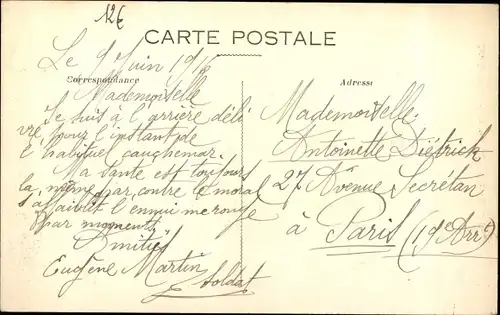 12€
CARTE POSTALE
Le 9 Juin 1916
Correspondance
Adresse
Mademoiselle
Je suis à l'arrière déli
vré pour l'instant de
l'habituel cauchemar.
Ma santé est toujours
la même par contre le moral
s'affaiblit l'ennui me ronge
par moments
Amitiés
Eugène Martin
soldat
Mademoiselle
Antoinette Diétrick
27 Avenue Secrétan
à Paris (19e Arrt)